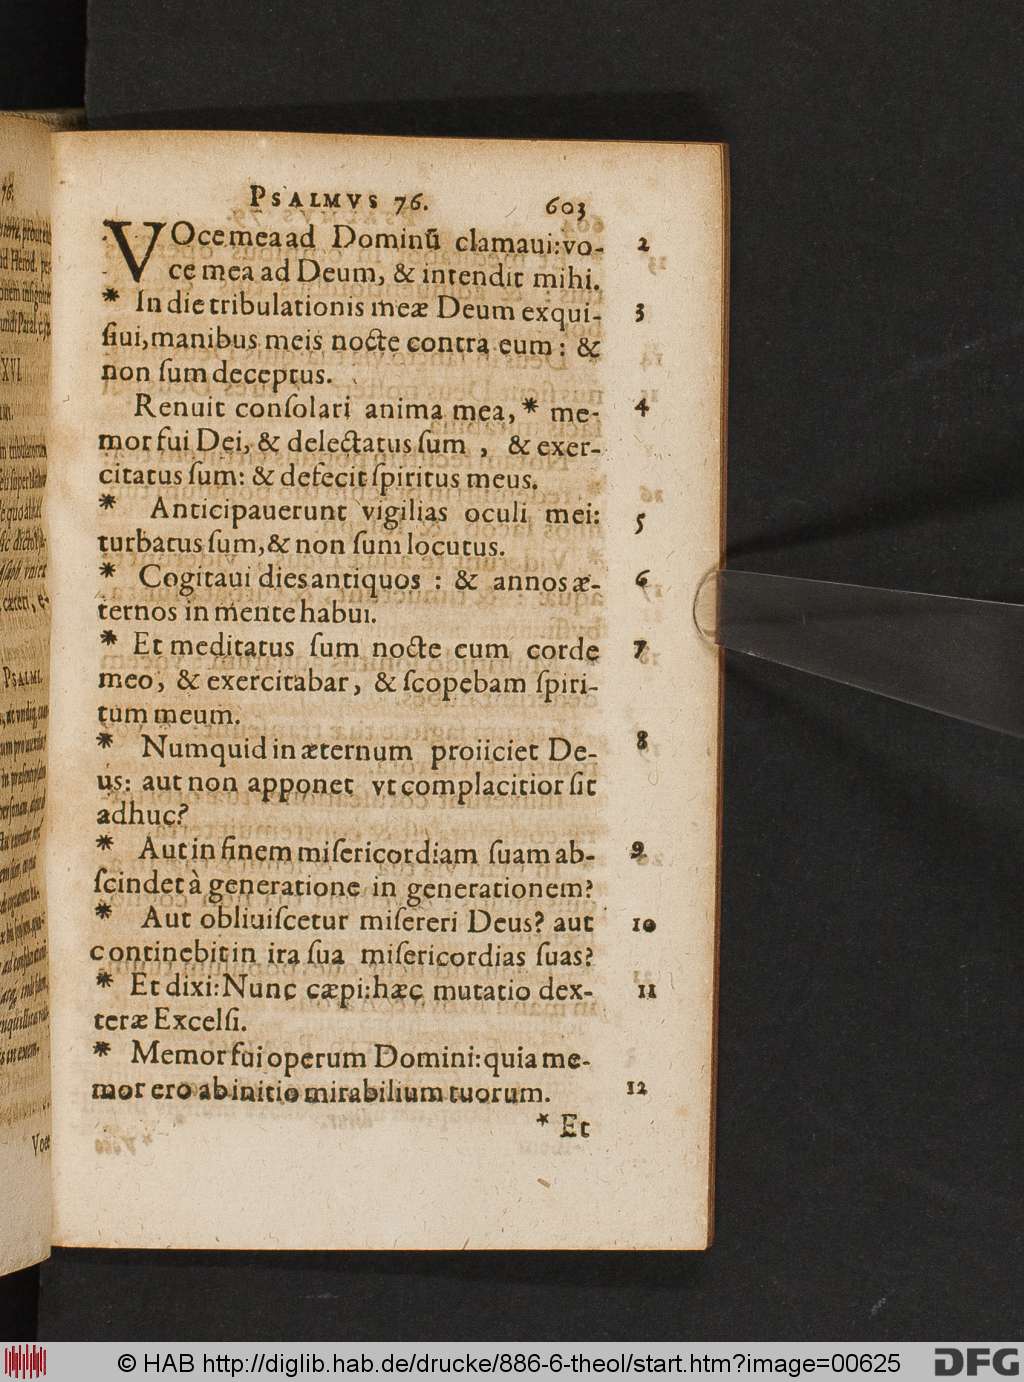 PSALMVS 76. 603
VOce mea ad Dominũ clamaui: vo- 2
ce mea ad Deum, & intendit mihi.
* In die tribulationis meæ Deum exqui- 3
ſiui, manibus meis nocte contra eum: &
non ſum deceptus.
Renuit conſolari anima mea, * me- 4
mor fui Dei, & delectatus ſum, & exer-
citatus ſum: & defecit ſpiritus meus.
* Anticipauerunt vigilias oculi mei: 5
turbatus ſum, & non ſum locutus.
* Cogitaui dies antiquos: & annos æ- 6
ternos in mente habui.
* Et meditatus ſum nocte cum corde 7
meo, & exercitabar, & ſcopebam ſpiri-
tum meum.
* Numquid in æternum proiiciet De- 8
us: aut non apponet vt complacitior ſit
adhuc?
* Aut in finem miſericordiam ſuam ab- 9
ſcindet à generatione in generationem?
* Aut obliuiſcetur miſereri Deus? aut 10
continebit in ira ſua miſericordias ſuas?
* Et dixi: Nunc cæpi: hæc mutatio dex- 11
teræ Excelſi.
* Memor fui operum Domini: quia me-
mor ero ab initio mirabilium tuorum. 12
* Et
© HAB http://diglib.hab.de/drucke/886-6-theol/start.htm?image=00625
DFG